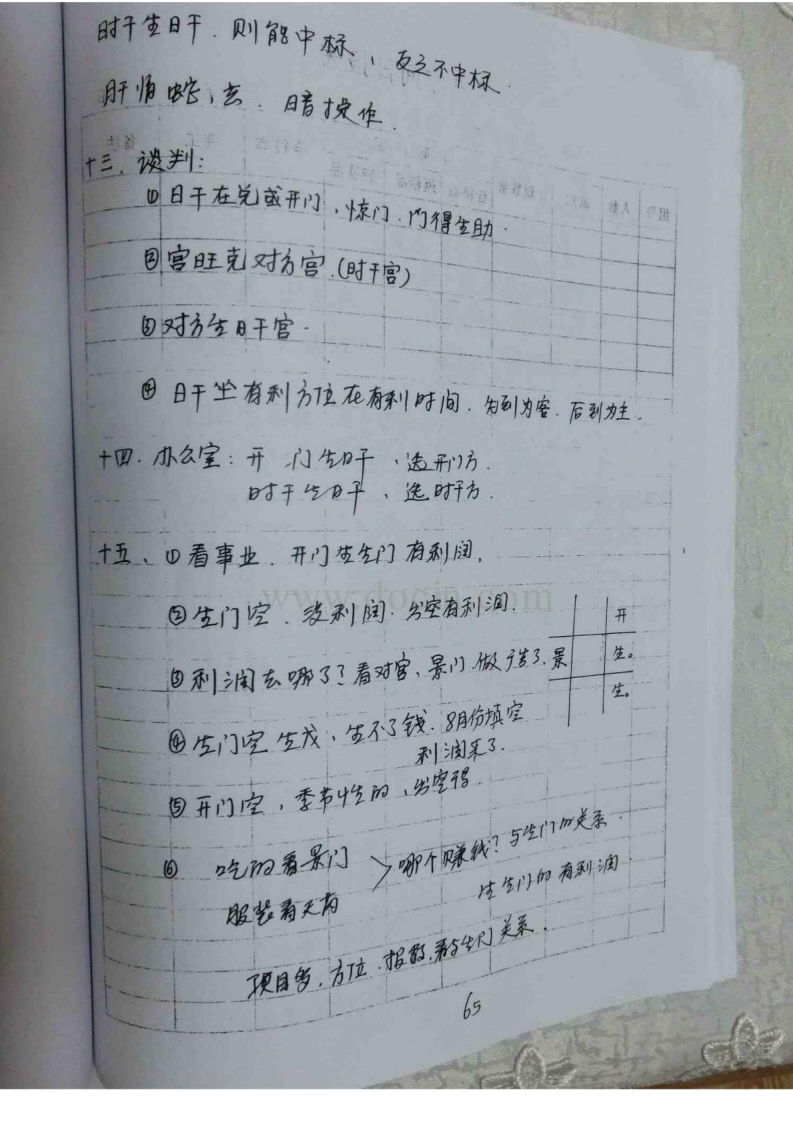 时干生日干.则能中标,反之不中标.
开临蛇,玄.暗操作.
十三、谈判:
①日干在兑或开门、惊门.门得生助.
②宫旺克对方宫.(时干宫)
③对方生日干宫.
④日干坐有利方位在有利时间.先到为客.后到为主.
十四.办公室:开门生日干、选开门方.
时干生日干、选时干方.
十五、①看事业.开门生生门有利润,
www.docin.com
②生门空.没利润.出空有利润.
开
③利润去哪了?看对宫、景门.做广告了.
景 生。
生。
④生门空生戊,生不了钱.8月份填空
利润来了.
⑤开门空,季节性的、出空得.
⑥ 吃的看景门
服装看天芮
>哪个赚钱?与生门的关系.
生生门的有利润.
项目多.方位.报数.看与生门关系.
65